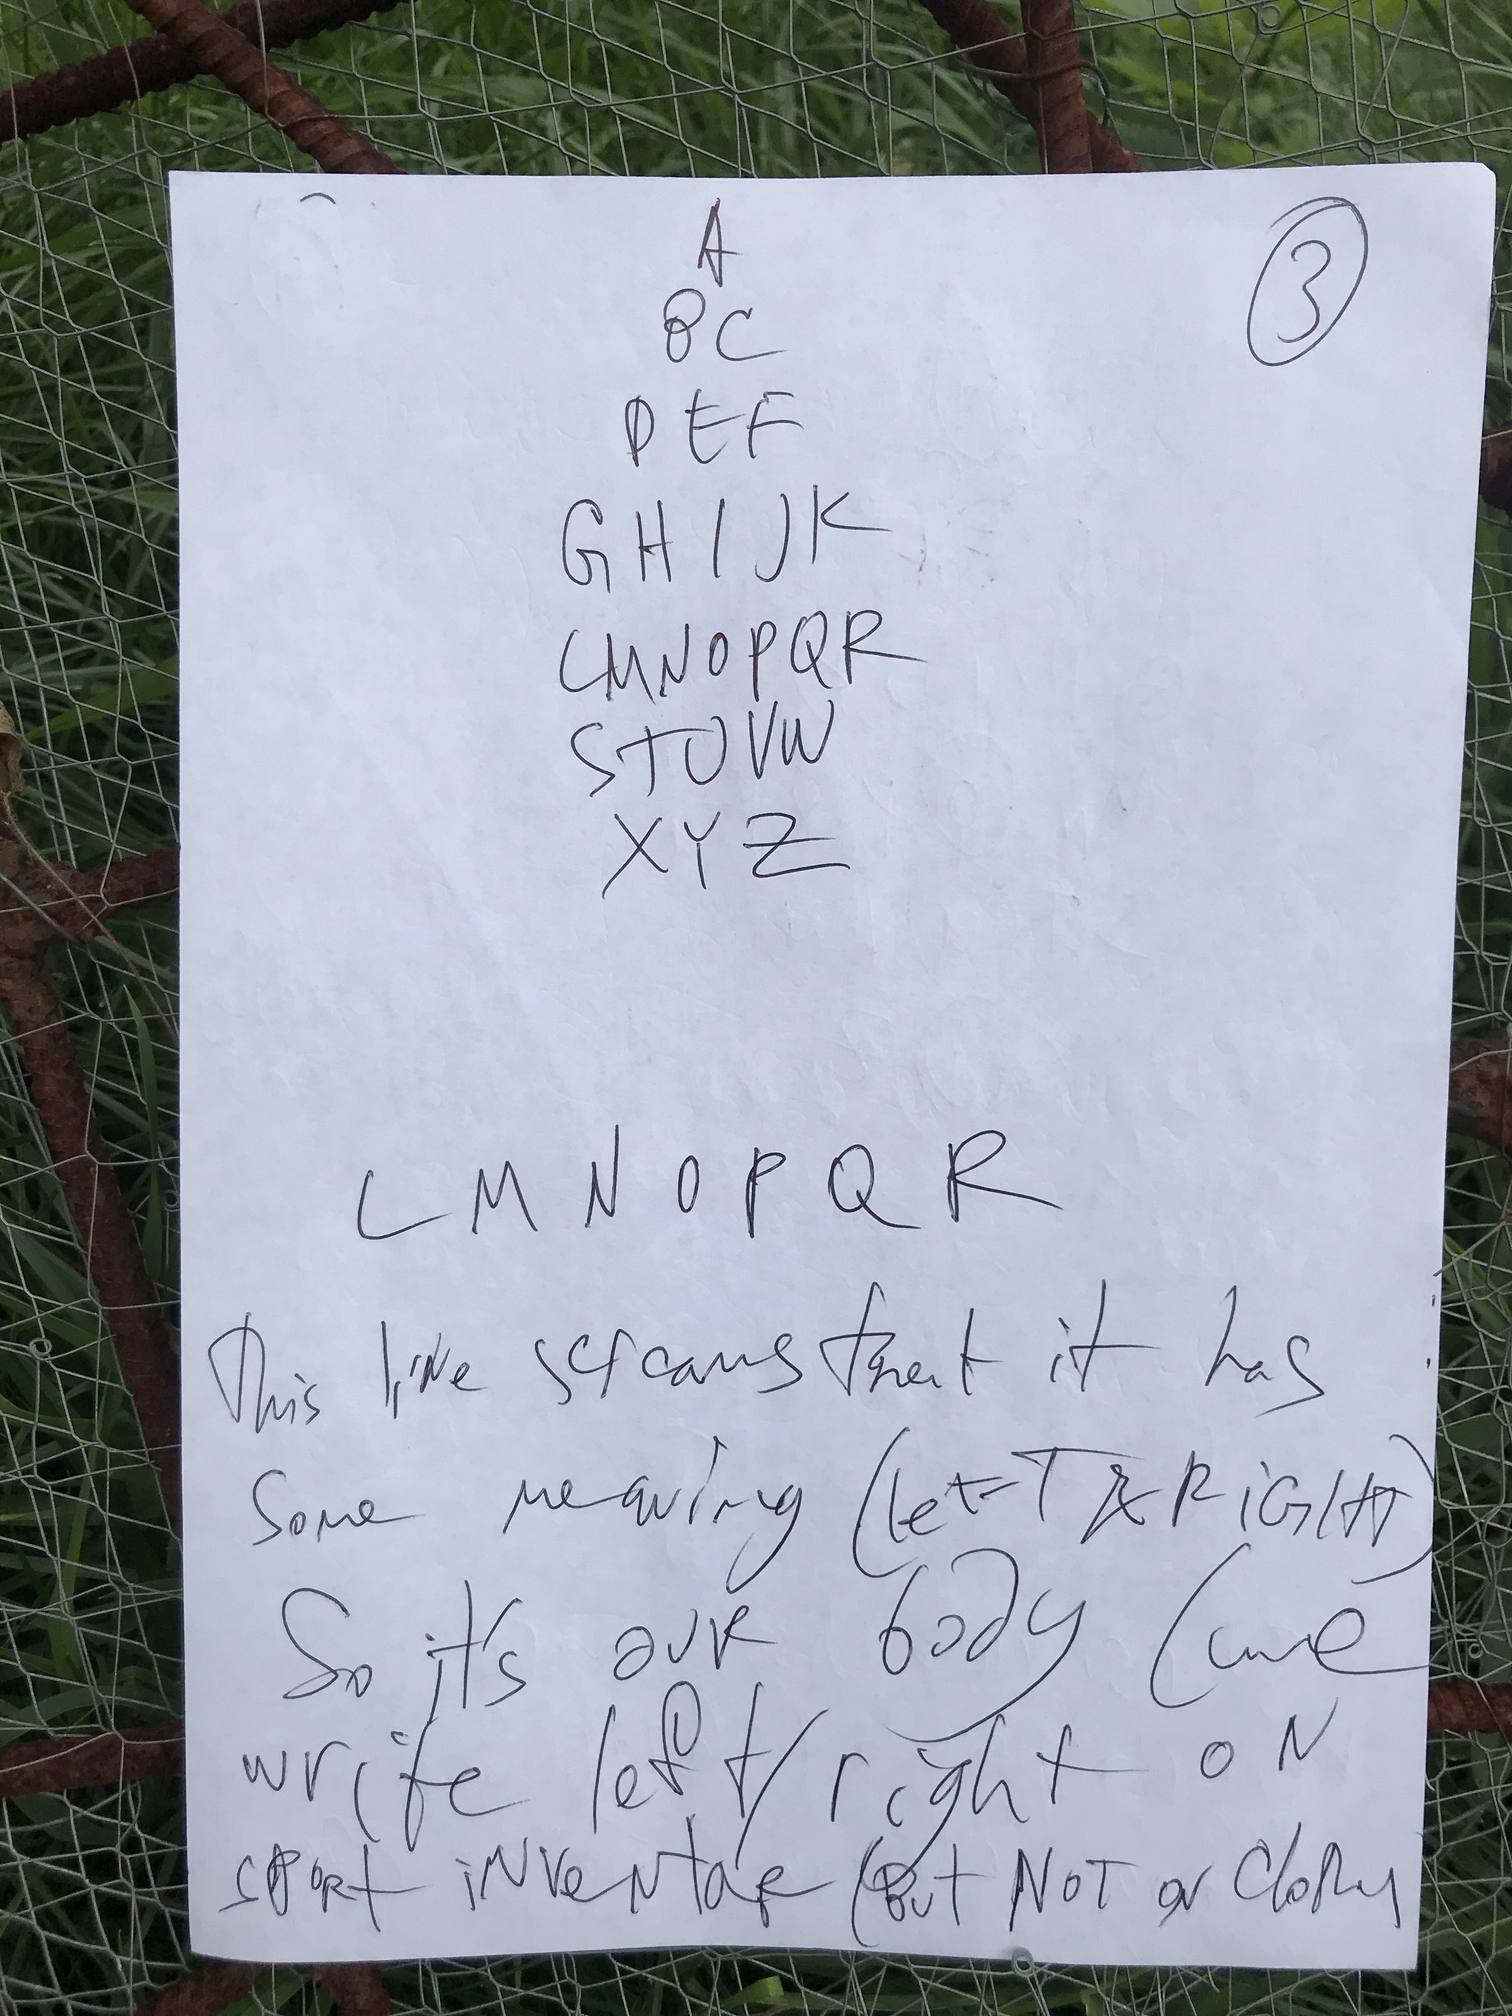 A
③
BC
DEF
GHIJK
LMNOPQR
STUVW
XYZ
L M N O P Q R
This line screams that it has
some meaning (LefT & RiGHT)
So it's our body (we
write left/right on
sport inventar (But NOT on